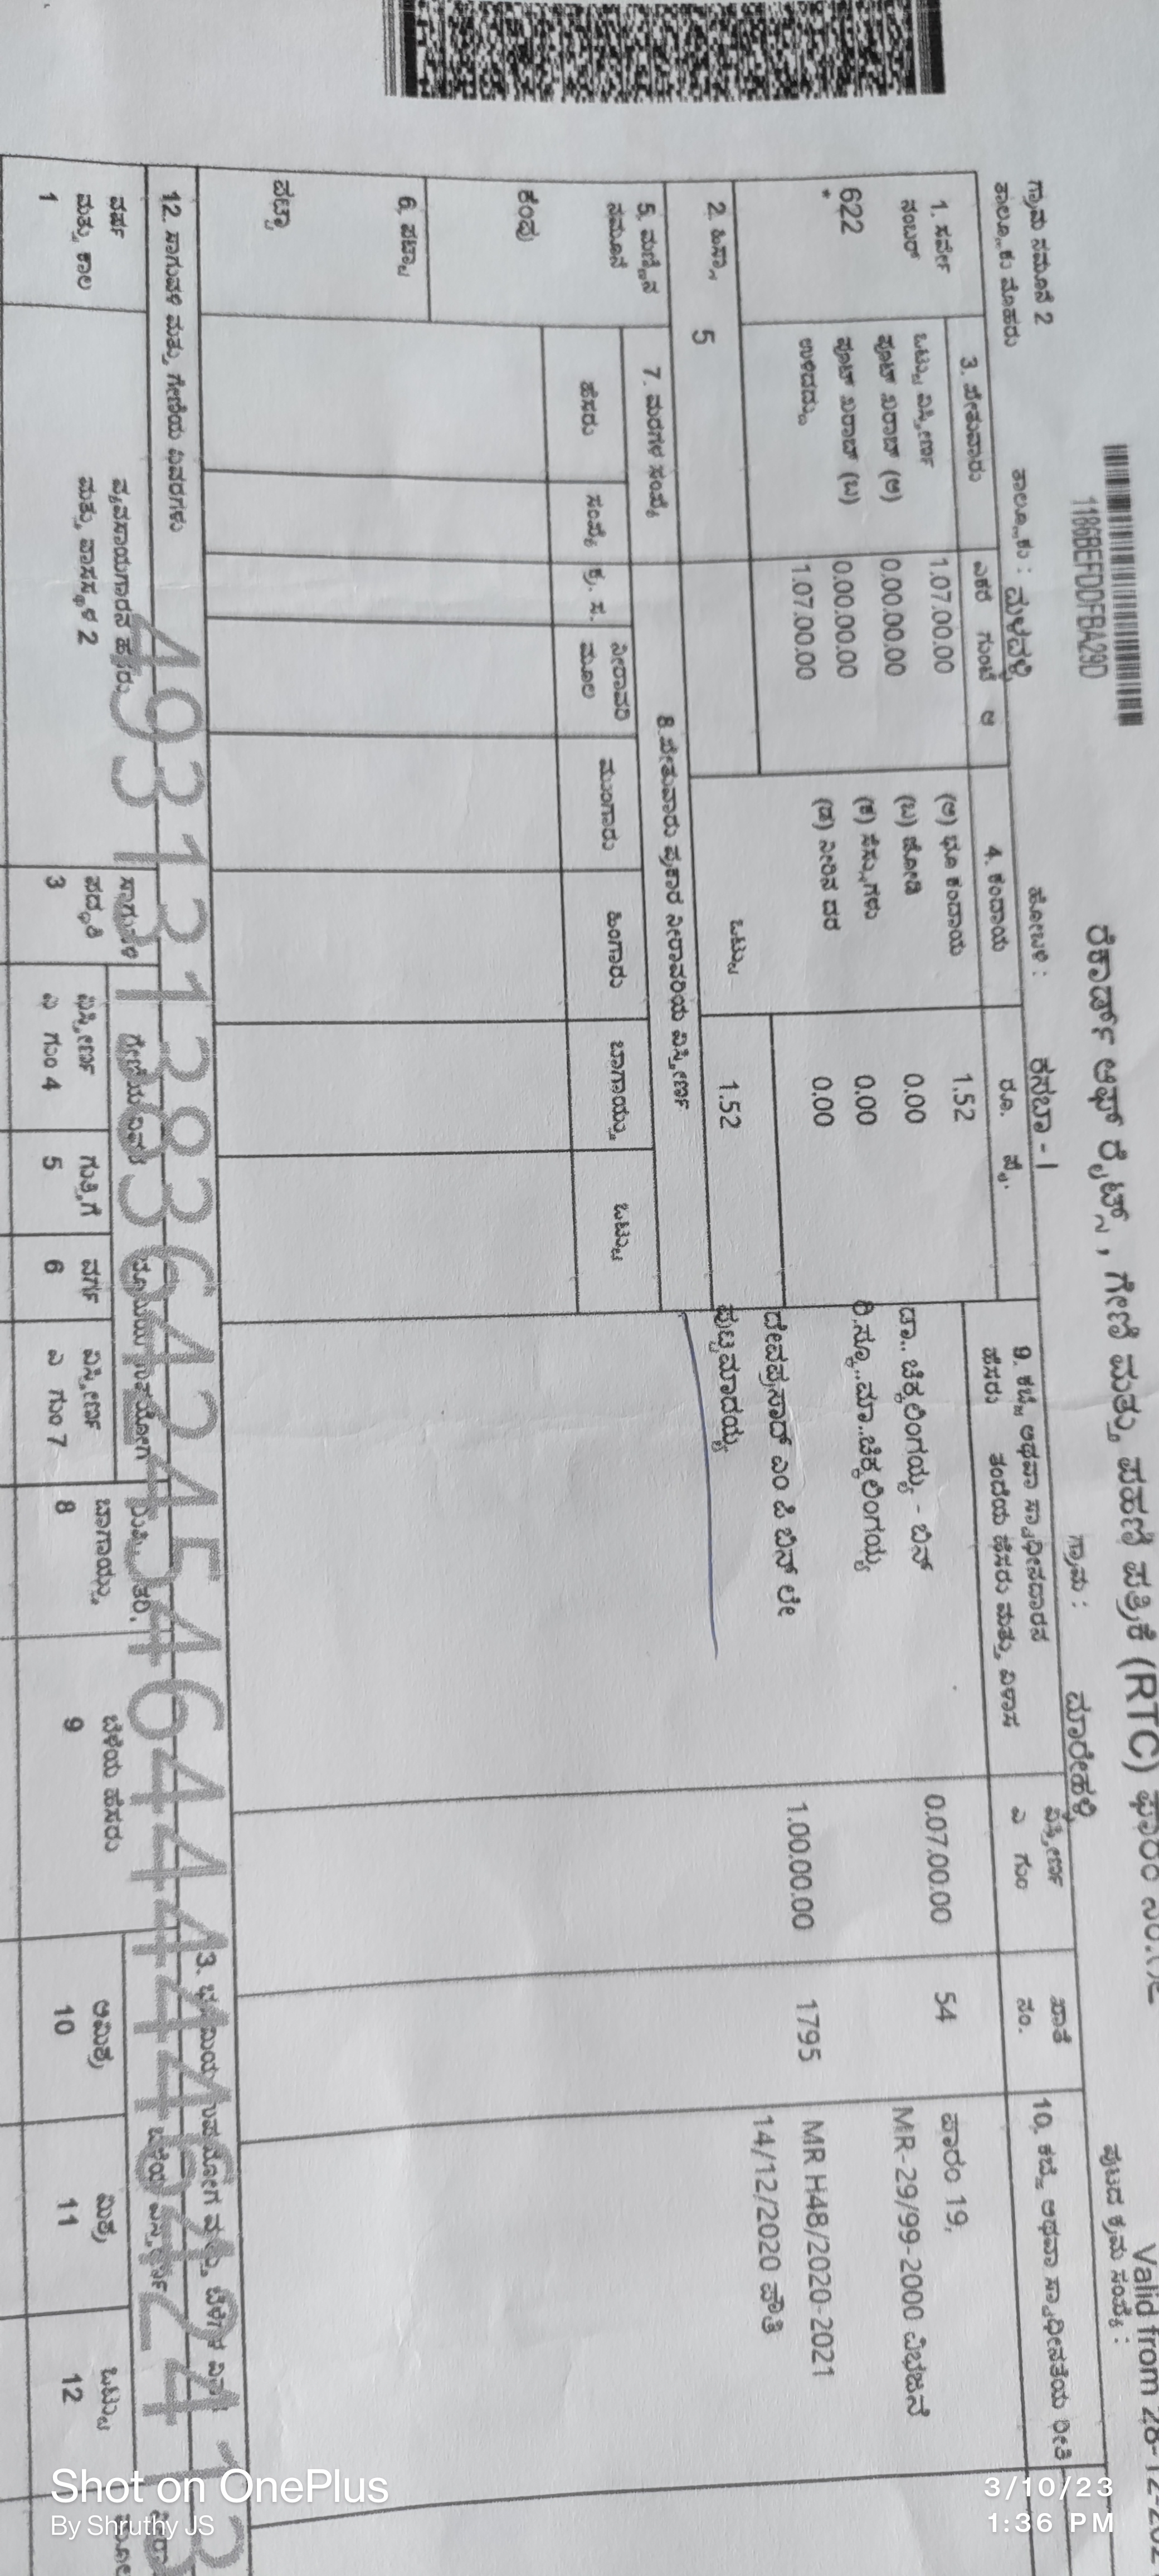 1186BEFDDFBA29D
ರೆಕಾರ್ಡ್ ಆಫ್ ರೈಟ್ಸ್, ಗೇಣಿ ಮತ್ತು ಪಹಣಿ ಪತ್ರಿಕೆ (RTC) ಫಾರಂ ನಂ.
Valid from 28-12-202
ಗ್ರಾಮ ನಮೂನೆ 2
ಪುಟದ ಕ್ರಮ ಸಂಖ್ಯೆ :
ತಾಲ್ಲೂಕು ಮೊಹರು ತಾಲ್ಲೂಕು : ಮಳವಳ್ಳಿ ಹೋಬಳಿ : ಕಸಬಾ - 1 ಗ್ರಾಮ : ಮಾರೇಹಳ್ಳಿ
1. ಸರ್ವೆ ನಂಬರ್
622
*
2. ಹಿಸ್ಸಾ 5
3. ವೇತುವಾರು ಎಕರೆ ಗುಂಟೆ ಆ
ಒಟ್ಟು ವಿಸ್ತೀರ್ಣ 1.07.00.00
ಪೂಟ್ ಖರಾಬ್ (ಅ) 0.00.00.00
ಪೂಟ್ ಖರಾಬ್ (ಬ) 0.00.00.00
ಉಳಿದದ್ದು 1.07.00.00
4. ಕಂದಾಯ ರೂ. ಪೈ.
(ಅ) ಭೂ ಕಂದಾಯ 1.52
(ಬ) ಜೋಡಿ 0.00
(ಕ) ಸೆಸ್ಸುಗಳು 0.00
(ಡ) ನೀರಿನ ದರ 0.00
ಒಟ್ಟು 1.52
9. ಕಬ್ಜೆ ಅಥವಾ ಸ್ವಾಧೀನದಾರನ
ಹೆಸರು ತಂದೆಯ ಹೆಸರು ಮತ್ತು ವಿಳಾಸ
ವಿಸ್ತೀರ್ಣ
ಎ ಗುಂ
ಖಾತೆ
ನಂ.
10. ಕಬ್ಜೆ ಅಥವಾ ಸ್ವಾಧೀನತೆಯ ರೀತಿ
ಡಾ.. ಚಿಕ್ಕಲಿಂಗಯ್ಯ - ಬಿನ್ 0.07.00.00 54 ಪಾರಂ 19,
ರಿ.ಸ್ಕೂ..ಮಾ..ಚಿಕ್ಕಲಿಂಗಯ್ಯ MR-29/99-2000 ವಿಭಜನೆ
ದೇವಪ್ರಸಾದ್ ಎಂ ಪಿ ಬಿನ್ ಲೇ 1.00.00.00 1795 MR H48/2020-2021
ಪುಟ್ಟಮಾದಯ್ಯ 14/12/2020 ಪೌತಿ
5. ಮಣ್ಣಿನ
ನಮೂನೆ
ಕೆಂಪು
6. ಪಟ್ಟಾ
ಪಟ್ಟಾ
7. ಮರಗಳ ಸಂಖ್ಯೆ
ಹೆಸರು ಸಂಖ್ಯೆ
8. ವೇತುವಾರು ಪ್ರಕಾರ ನೀರಾವರಿಯ ವಿಸ್ತೀರ್ಣ
ಕ್ರ. ಸ. ನೀರಾವರಿ ಮೂಲ ಮುಂಗಾರು ಹಿಂಗಾರು ಬಾಗಾಯ್ತು ಒಟ್ಟು
12. ಸಾಗುವಳಿ ಮತ್ತು ಗೇಣಿಯ ವಿವರಗಳು
ವರ್ಷ
ಮತ್ತು ಕಾಲ
1
ವ್ಯವಸಾಯಗಾರನ ಹೆಸರು
ಮತ್ತು ವಾಸಸ್ಥಳ 2
ಸಾಗುವಳಿ
ಪದ್ಧತಿ
3
ವಿಸ್ತೀರ್ಣ
ಎ ಗುಂ 4
ಗುತ್ತಿಗೆ
5
ವರ್ಗ
6
ವಿಸ್ತೀರ್ಣ
ಎ ಗುಂ 7
ಬಾಗಾಯ್ತು
8
ಬೆಳೆಯ ಹೆಸರು
9
ಅಮಿಶ್ರ
10
ಮಿಶ್ರ
11
ಒಟ್ಟು
12
Shot on OnePlus
By Shruthy JS
3/10/23
1:36 PM